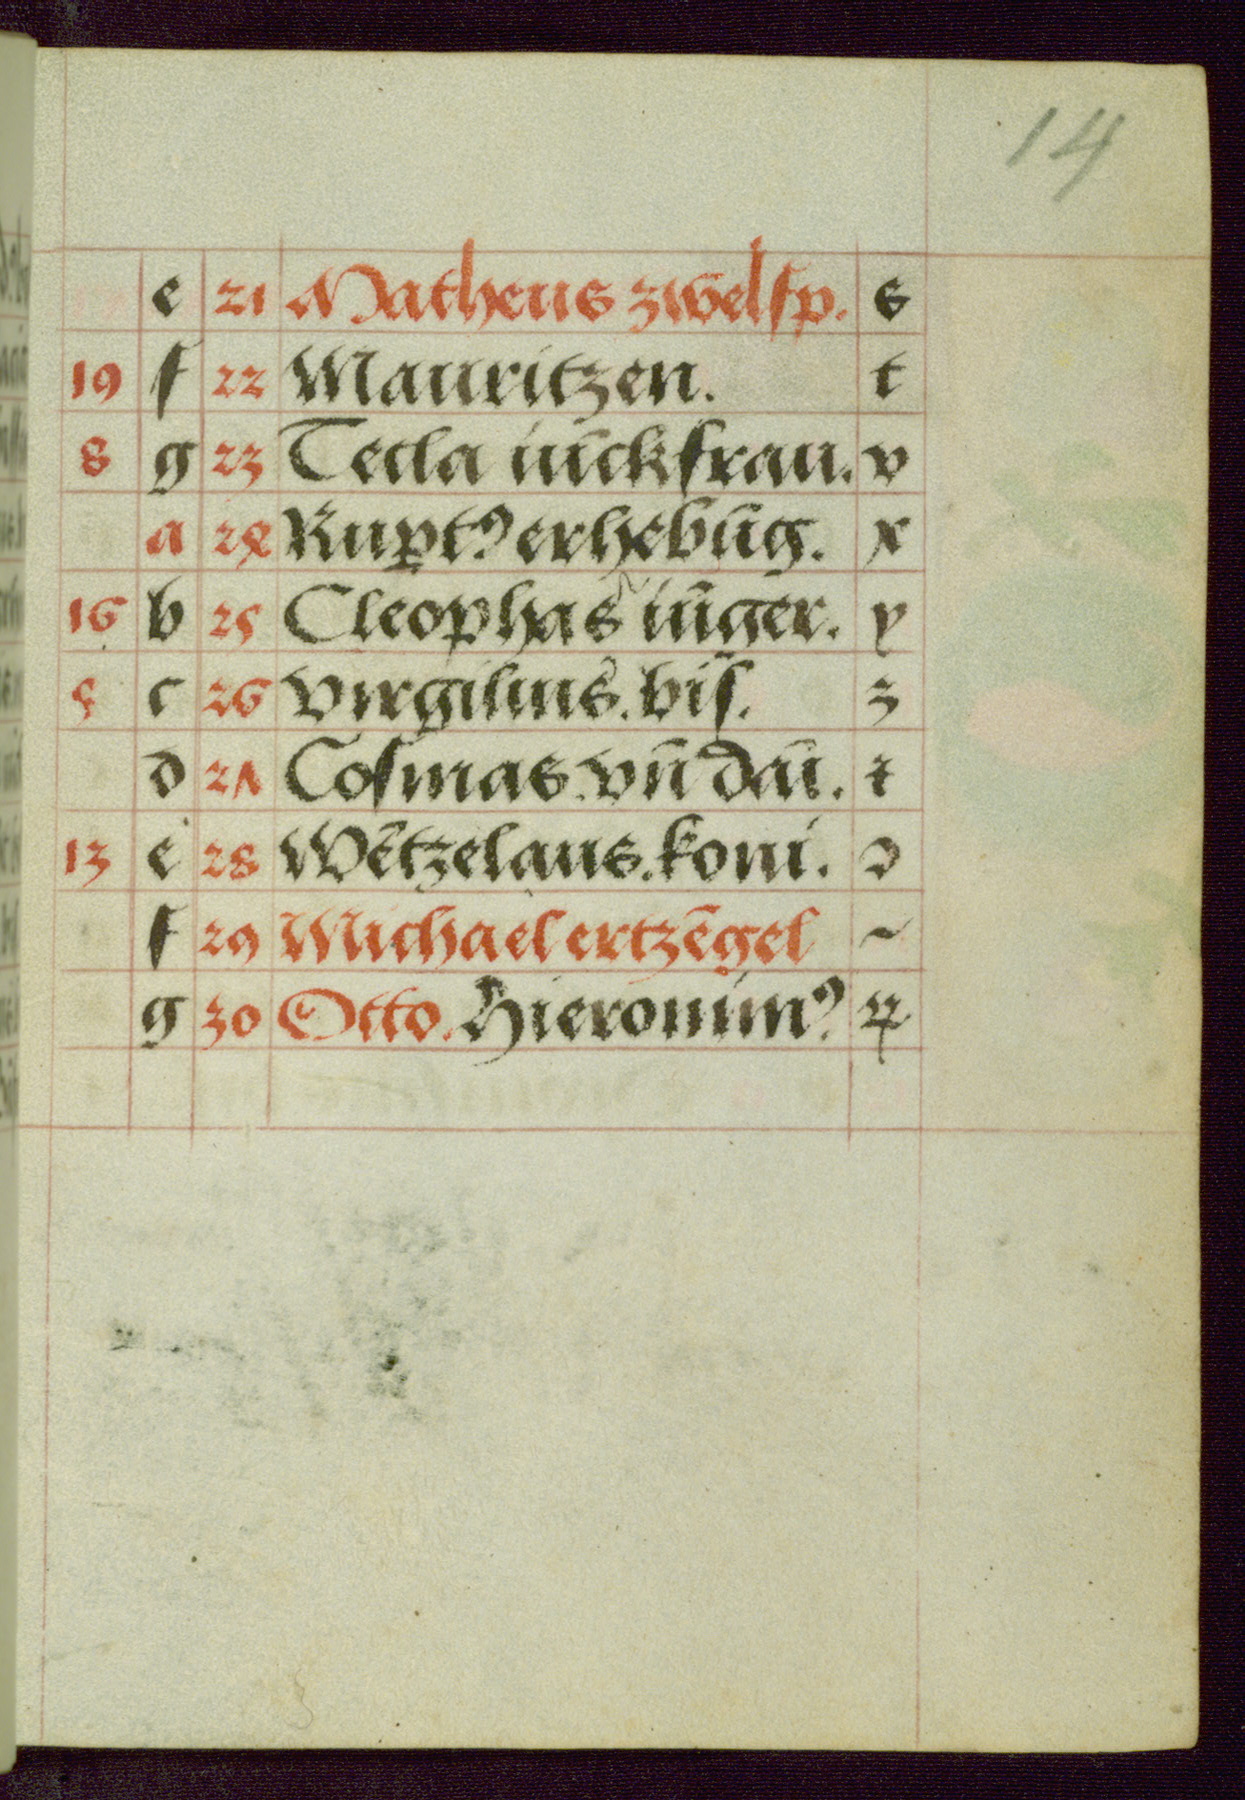 14
e 21 Matheus zwelfp. s
19 f 22 Mauritzen. t
8 g 23 Tecla iūckfrau. v
a 24 Rup̱tꝰ erhebūg. x
16 b 25 Cleophas iūger. y
5 c 26 Virgilius. bis̄. z
d 27 Cosmas. vn̄ dāi. ꝛ
13 e 28 We̅tzelaus. koni. ɔ
f 29 Michael ertze̅gel ~
g 30 Otto. Hieronim̄ꝰ ꝝ